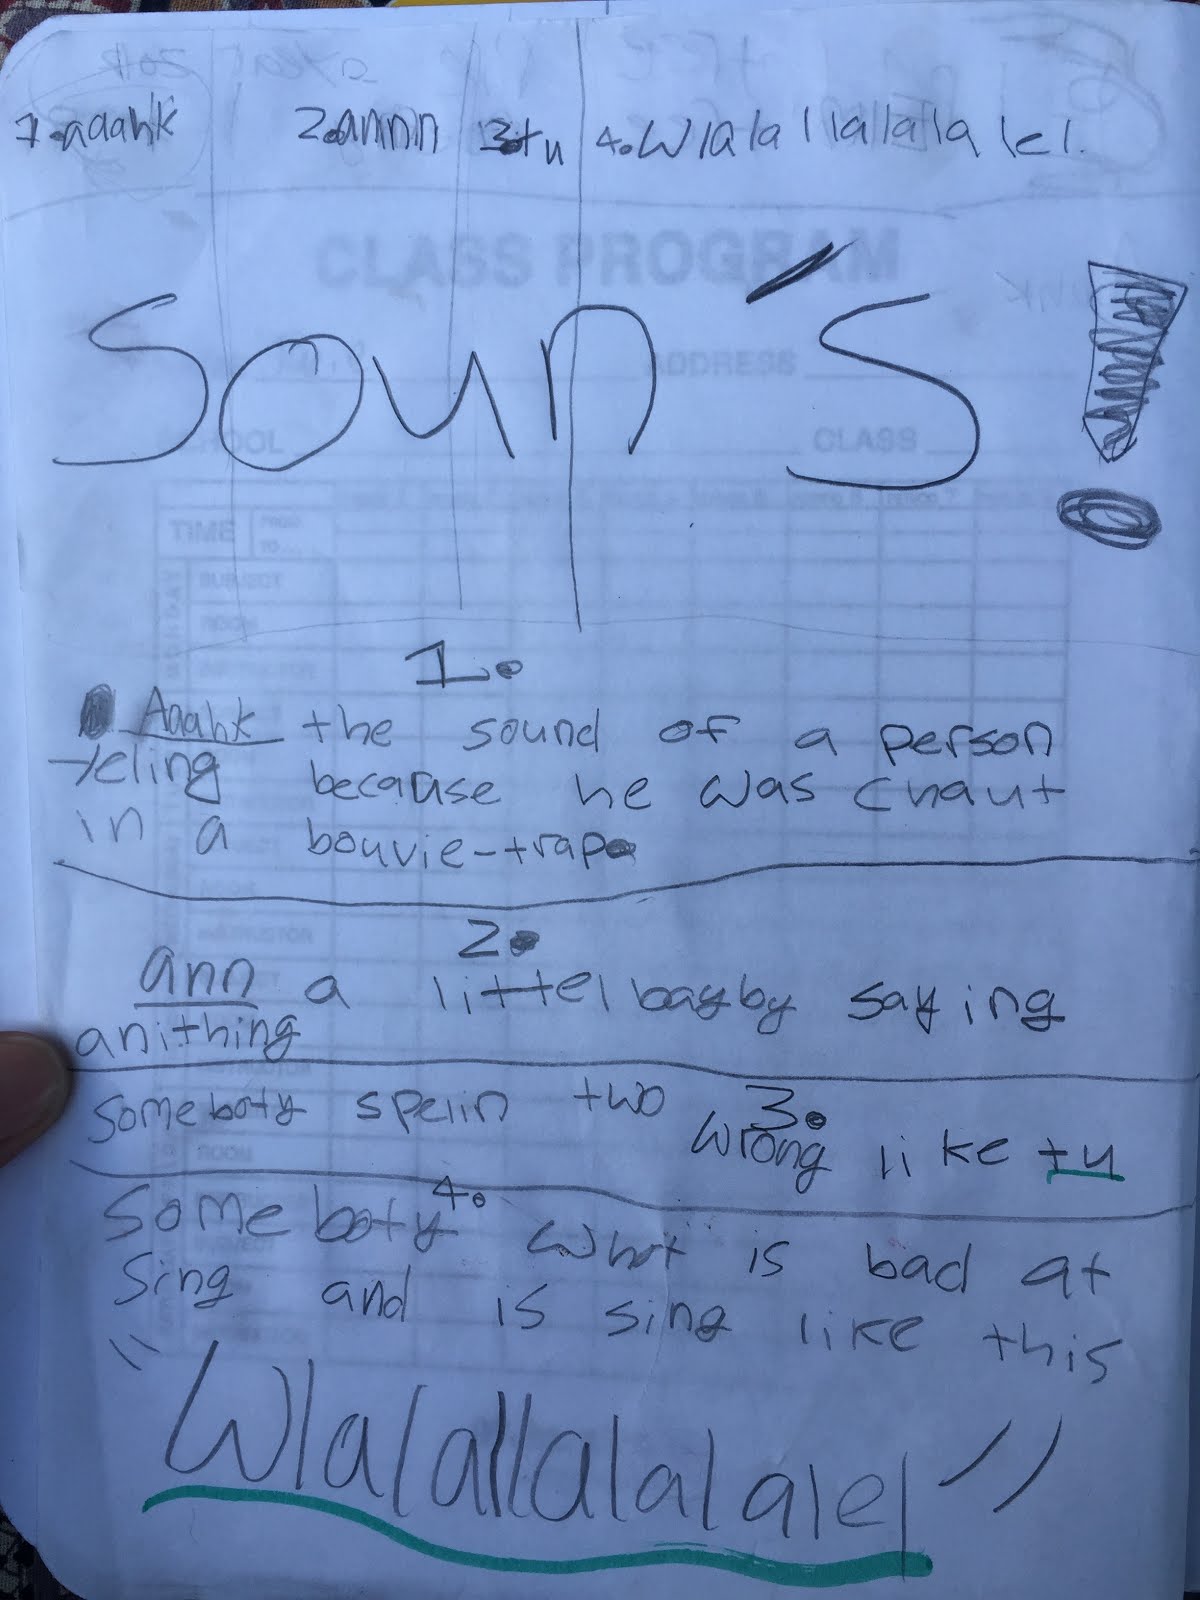 1.aaahk 2.annn 3.tu 4.Wlalallalalalalel.
CLASS PROGRAM
Soun's!
ADDRESS
CLASS
TIME
1.
Aaahk the sound of a person
yeling because he was chaut
in a bouvie-trap.
2.
ann a littel bayby saying
anithing
3.
Someboty spelin two wrong like tu
4.
Someboty what is bad at
sing and is sing like this
"Wlalallalalalel"